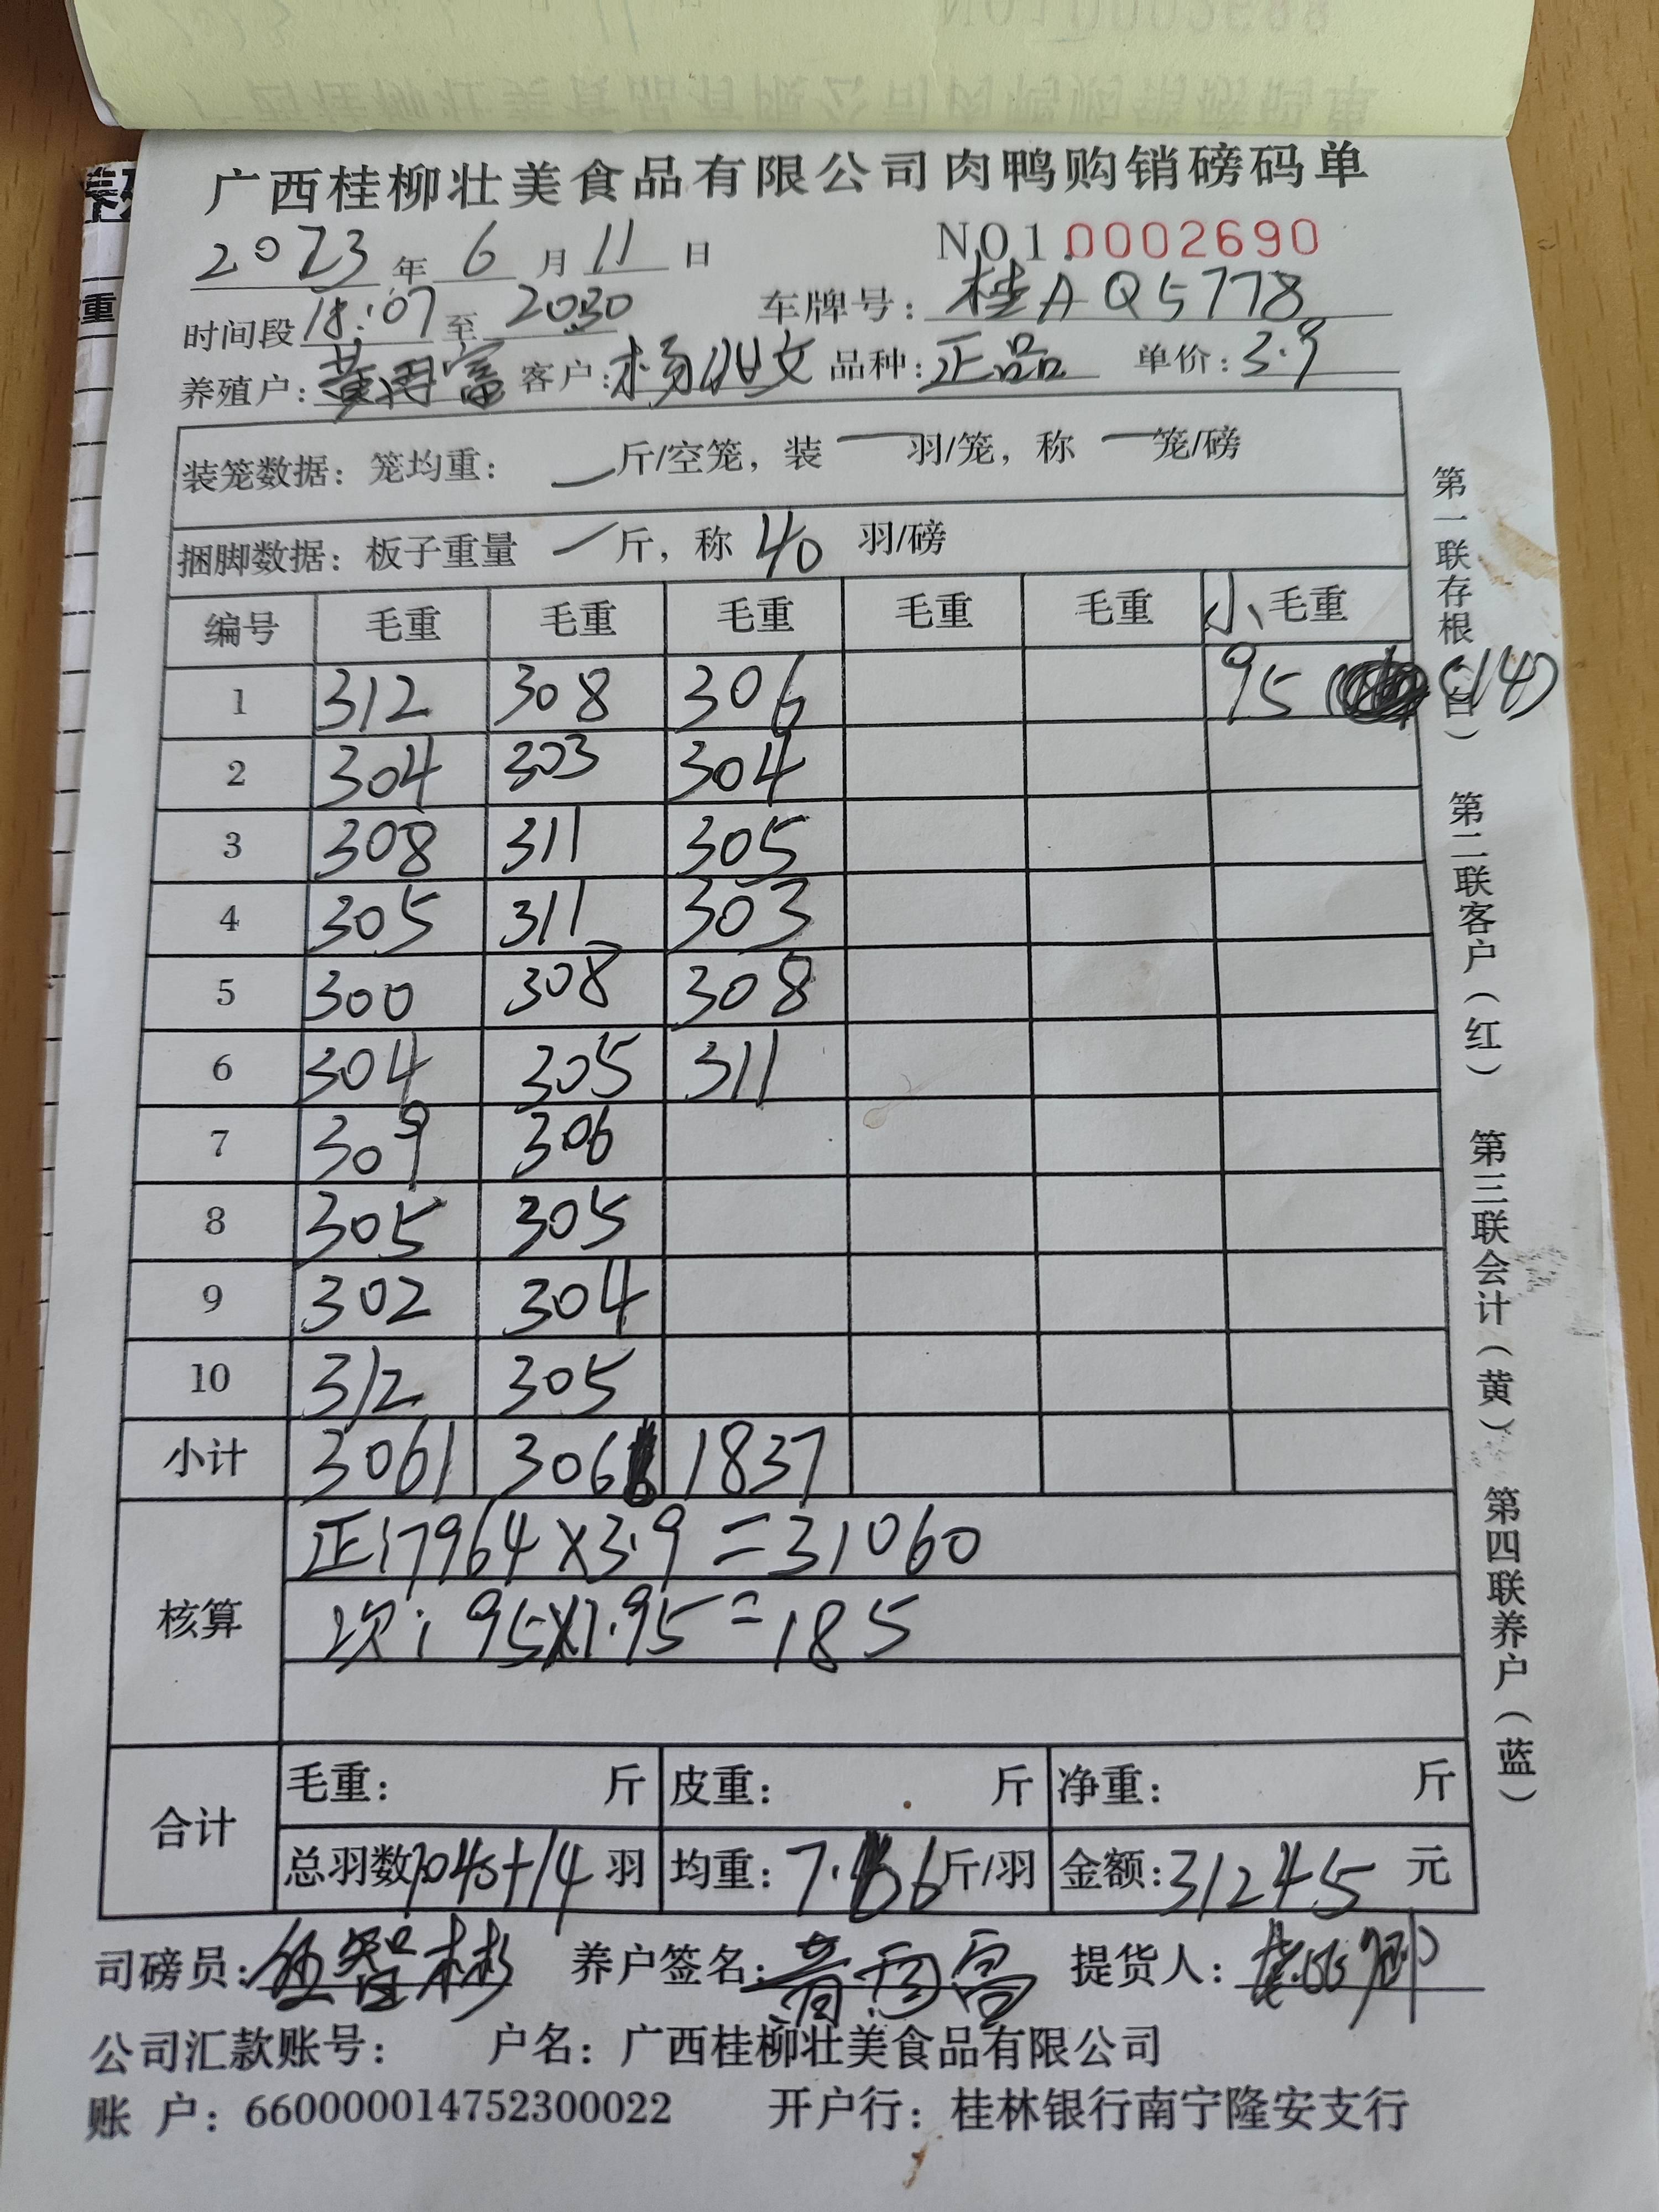 广西桂柳壮美食品有限公司肉鸭购销磅码单
2023年 6 月 11 日 NO1.0002690
时间段 18:07 至 2030 车牌号: 桂A Q5778
养殖户: 黄 富 客户: 杨 文 品种: 正品 单价: 3.9
装笼数据: 笼均重: — 斤/空笼, 装 — 羽/笼, 称 — 笼/磅
捆脚数据: 板子重量 — 斤, 称 40 羽/磅
编号 毛重 毛重 毛重 毛重 毛重 小 毛重
1 312 308 306 95 (14)
2 304 303 304
3 308 311 305
4 305 311 303
5 300 308 308
6 304 305 311
7 309 306
8 305 305
9 302 304
10 312 305
小计 3061 3066 1837
核算
正:7964×3.9=31060
次:95×1.95=185
合计
毛重: 斤 皮重: 斤 净重: 斤
总羽数1040+14 羽 均重: 7.66斤/羽 金额:31245 元
司磅员: 养户签名: 提货人:
公司汇款账号: 户名: 广西桂柳壮美食品有限公司
账 户: 660000014752300022 开户行: 桂林银行南宁隆安支行
第一联存根(白) 第二联客户(红) 第三联会计(黄) 第四联养户(蓝)
重